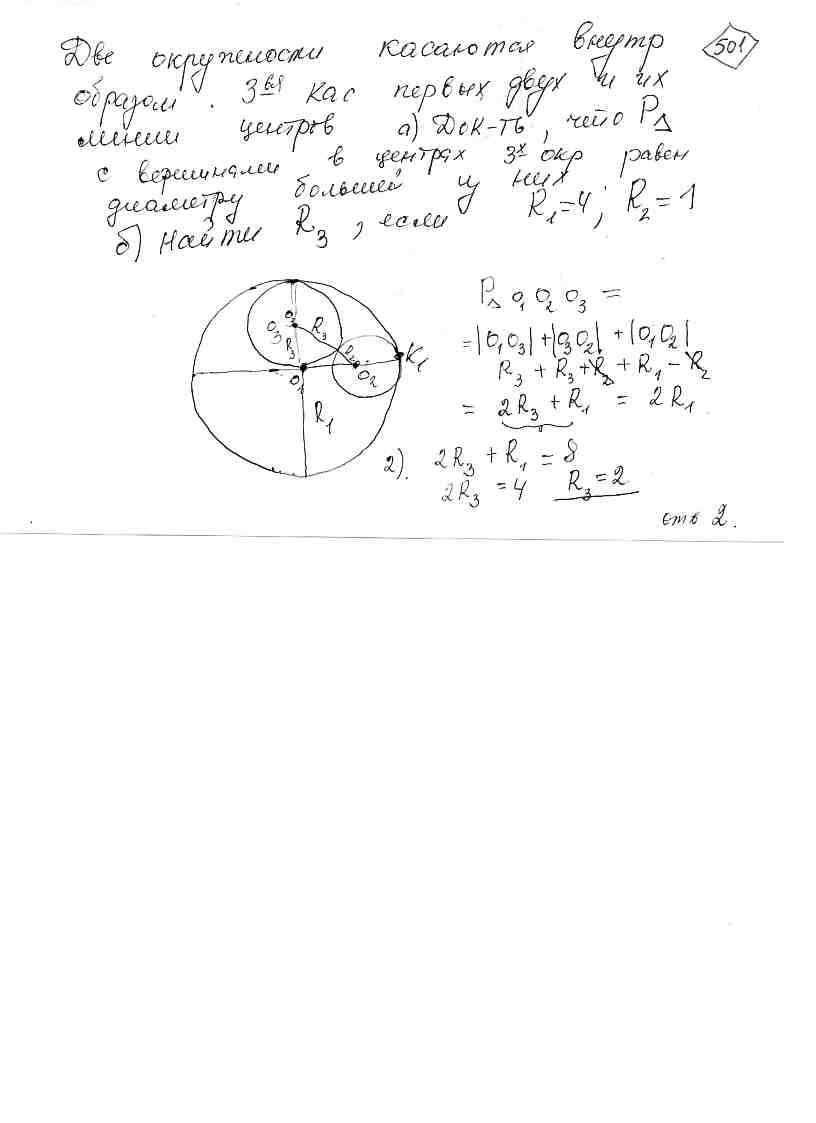 Две окружности касаются внутр
501
образом. 3ья кас первых двух и их
линии центров а) Док-ть, что P△
с вершинами в центрах 3х окр равен
диаметру большей из них
б) Найти R3, если R1=4; R2=1
P△ O1O2O3 =
= |O1O3| + |O3O2| + |O1O2|
R3 + R3 + R2 + R1 - R2
= 2R3 + R1 = 2R1
2). 2R3 + R1 = 8
2R3 = 4 R3 = 2
отв 2.
O3
R3
R3
K1
O1
O2
R1